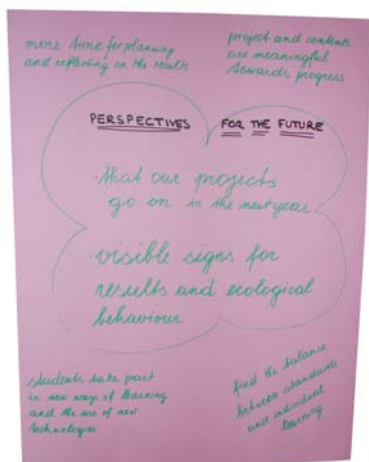 more time for planning
and reflecting on the results
project and contents
are meaningful
towards progress
PERSPECTIVES FOR THE FUTURE
- that our projects
go on in the next year
- visible signs for
results and ecological
behaviour
students take part
in new ways of learning
and the use of new
technologies
find the balance
between standards
and individual
learning